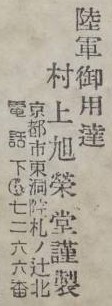 陸軍御用達
村上旭榮堂謹製
京都市東洞院札ノ辻北
電話下⑥七二六六番